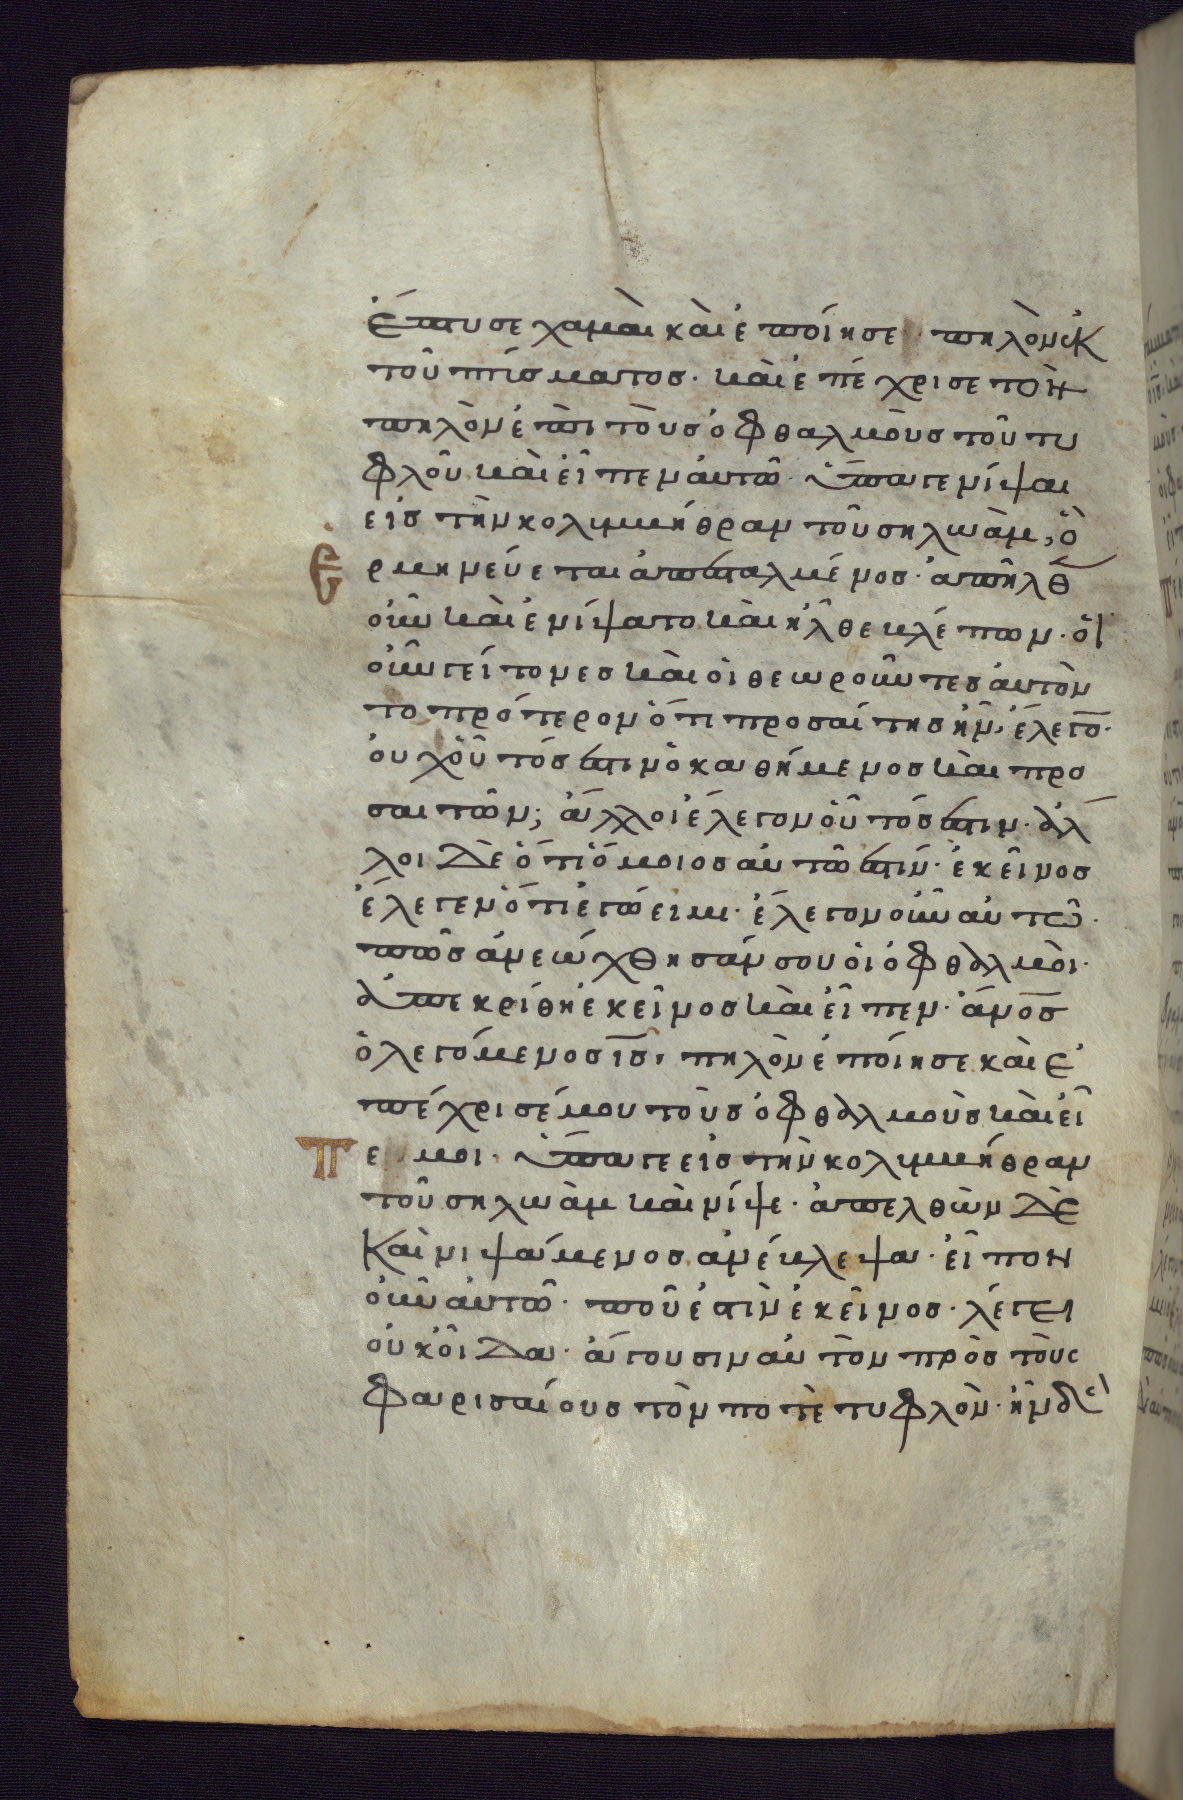 ἔπτυσε χαμαὶ καὶ ἐποίησε πηλὸν ἐκ
τοῦ πτύσματος· καὶ ἐπέχρισε τὸν
πηλὸν ἐπὶ τοὺς ὀφθαλμοὺς τοῦ τυ
φλοῦ καὶ εἶπεν αὐτῶ· ὕπαγε νίψαι
εἰς τὴν κολυμβήθραν τοῦ σηλωὰμ, ὃ
Ερμηνεύεται ἀπεσταλμένος· ἀπῆλθ
οὖν καὶ ἐνίψατο καὶ ἦλθε βλέπων· οἱ
οὖν γείτονες καὶ οἱ θεωροῦντες αὐτὸν
το πρότερον ὅτι προσαίτης ἦν, ἔλεγο̅·
οὐχ οὗτός ἐστιν ὁ καθήμενος καὶ προ
σαιτῶν; ἄλλοι ἔλεγον οὗτός ἐστιν· ἄλ
λοι δὲ ὅτι ὅμοιος αὐτῶ ἐστίν· ἐκεῖνος
ἔλεγεν ὅτι ἐγώ εἰμι· ἔλεγον οὖν αὐτῶ·
πῶς ἀνεώχθησάν σου οἱ ὀφθαλμοὶ·
ἀπεκρίθη ἐκεῖνος καὶ εἶπεν· ἄνο̅σ
ὁ λεγόμενος ι̅σ, πηλὸν ἐποίησε καὶ ἐ
πέχρισέ μου τοὺς ὀφθαλμοὺς καὶ εἶ
Πε μοι· ὕπαγε εἰς τὴν κολυμβήθραν
τοῦ σηλωὰμ καὶ νίψε· ἀπελθὼν δὲ
καὶ νιψάμενος ἀνέβλεψα· εἶπον
οὖν αὐτῶ· ποῦ ἐστὶν ἐκεῖνος· λέγει
οὐκ οἶδα· ἄγουσιν αὐτὸν πρὸς τοὺς
φαρισαίους τόν ποτὲ τυφλὸν· ἦν δὲ